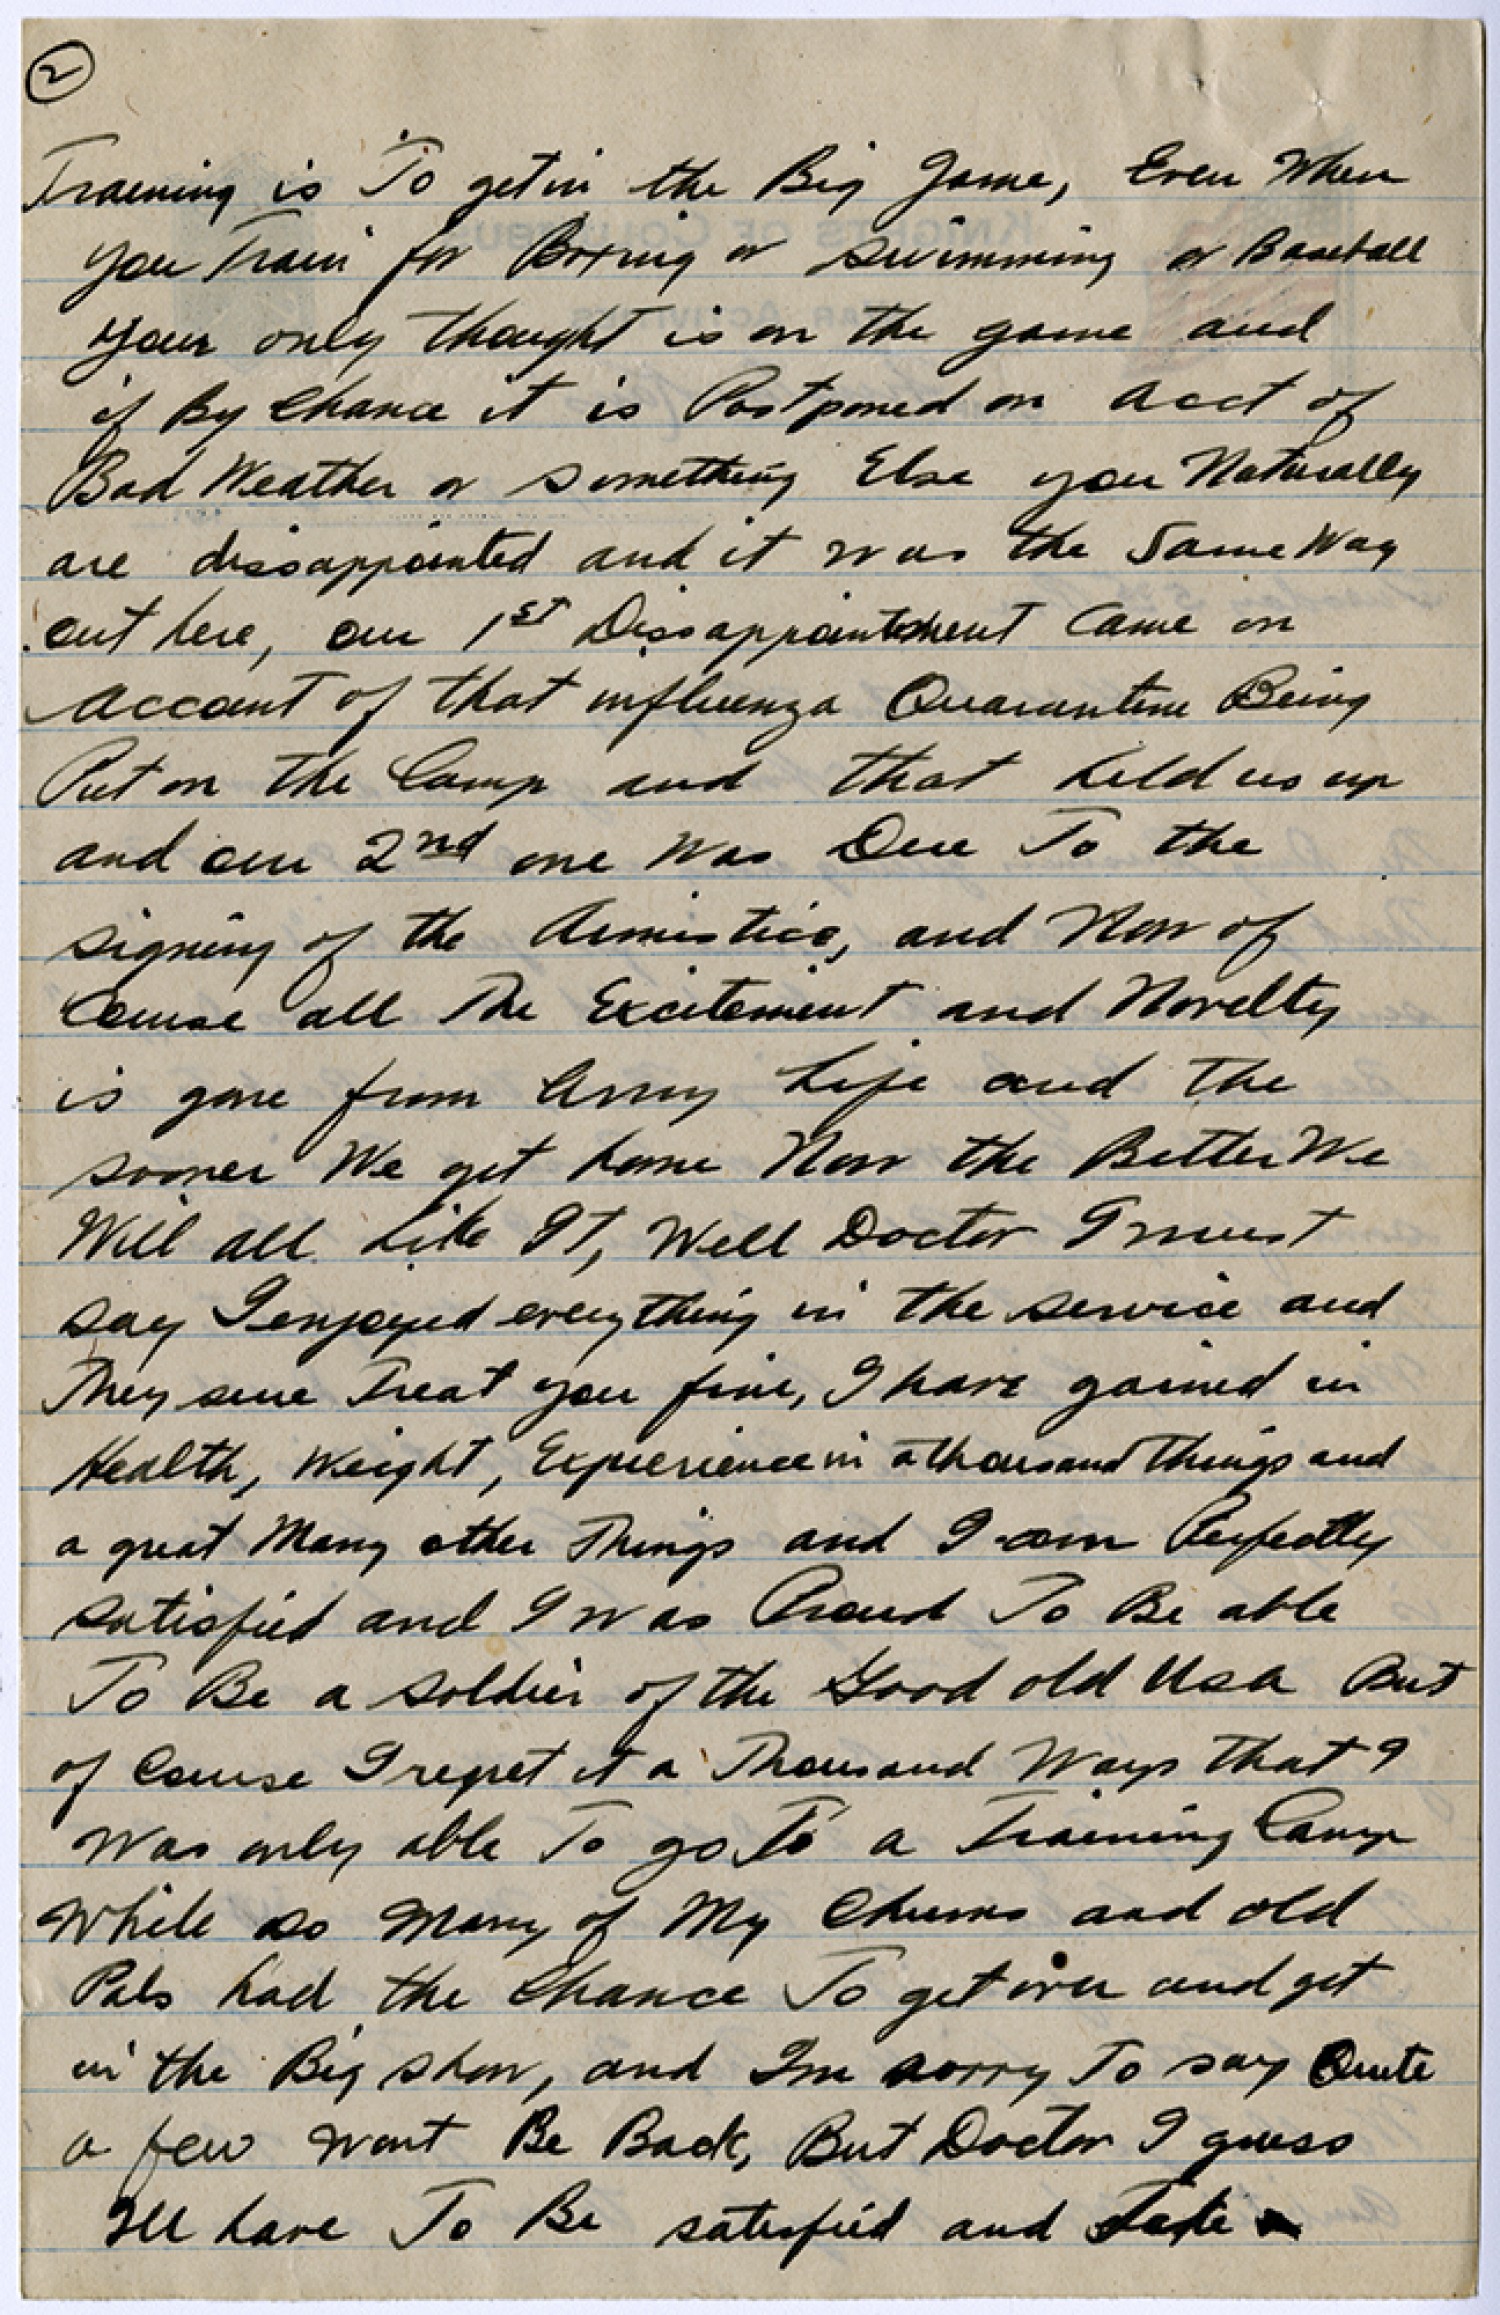 2
Training is To get in the Big Game, Even When
you Train for Boxing or swimming or Baseball
your only thought is on the game and
if By Chance it is Postponed on acct of
Bad Weather or something Else you Naturally
are dissappointed and it was the Same Way
out here, our 1st Dissappointment Came on
account of that influenza Quarantine Being
Put on the Camp and that held us up
and our 2nd one Was Due To the
signing of the Armistice, and Now of
Course all The Excitement and Novelty
is gone from Army Life and the
sooner We get home Now the Better We
Will all Like It, Well Doctor I must
say I enjoyed everything in the service and
They sure Treat you fine, I have gained in
Health, Weight, Experience in a thousand things and
a great Many other Things and I am Perfectly
satisfied and I was Proud To Be able
To Be a soldier of the Good old Usa But
of Course I regret it a Thousand Ways that I
Was only able To go To a Training Camp
While so Many of My Chums and old
Pals had the Chance To get over and get
in the Big show, and Im sorry To say Quite
a few wont Be Back, But Doctor I guess
Ill have To Be satisfied and
KNIGHTS OF COLUMBUS
WAR ACTIVITIES